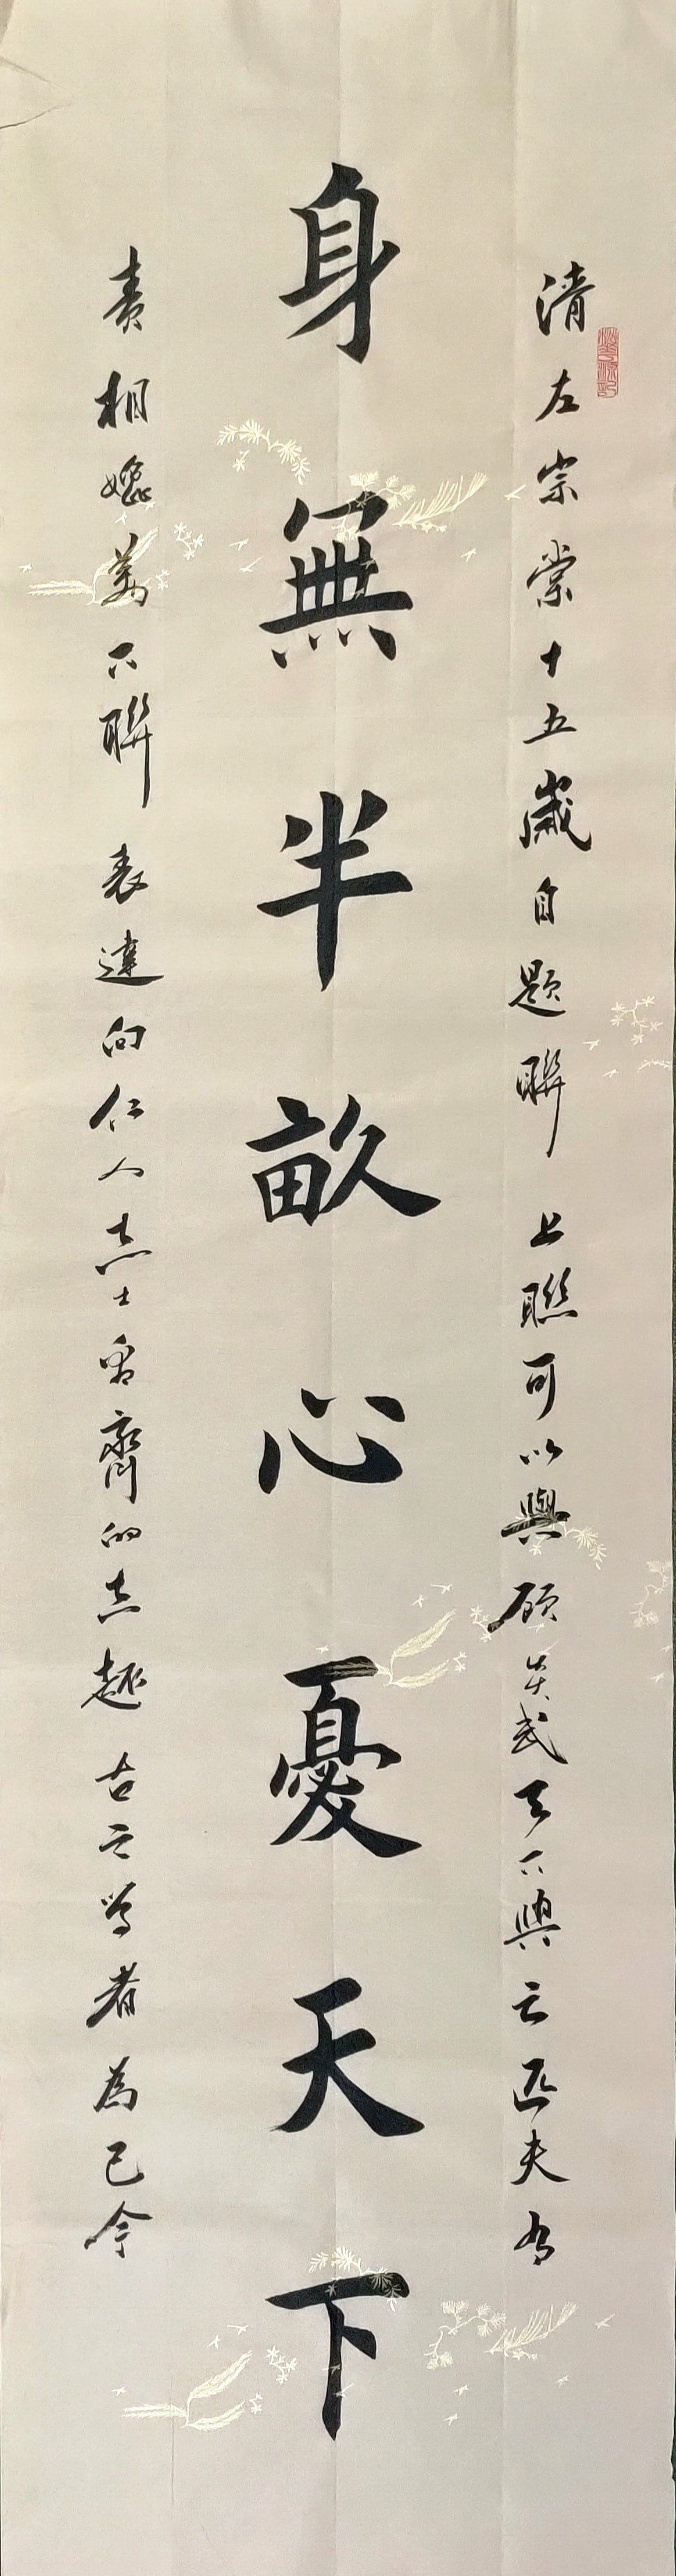 清左宗棠十五歲自題聯 上聯可以與顧炎武天下興亡匹夫有
身無半畝心憂天下
責相媲美下聯 表達向仁人志士看齊的志趣 古之學者為己今